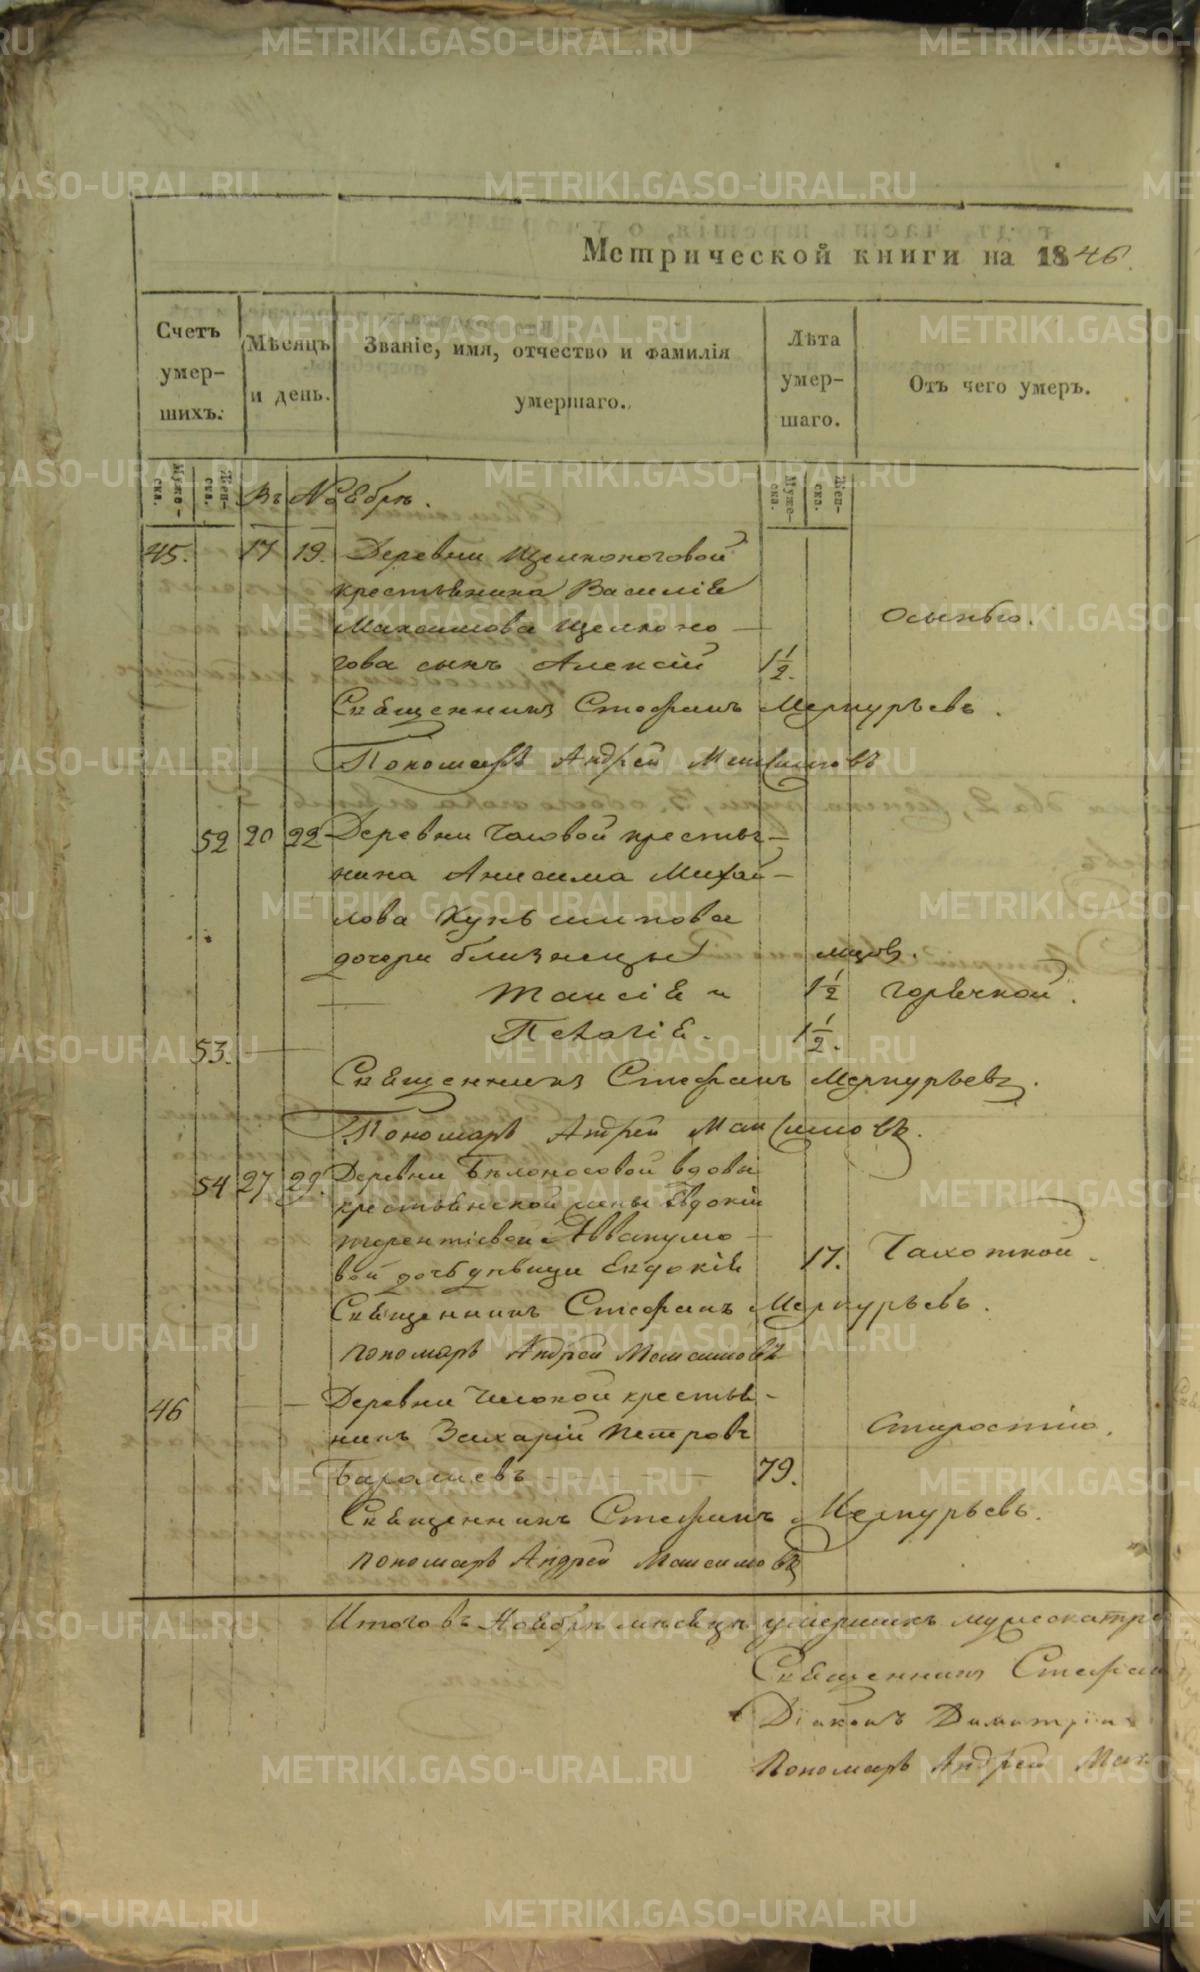 Метрической книги на 1846.
Счетъ умер-шихъ.
Мѣсяцъ и день.
Званіе, имя, отчество и фамилія умершаго.
Лѣта умер-шаго.
Отъ чего умеръ.
Муже-ска.
Жен-ска.
Въ Ноѣбрѣ.
Муже-ска.
Жен-ска.
45. 17 19. Деревни Щелконоговой
крестьянина Василіѣ
Максимова Щелконо
гова сынъ Алексій 1 1/2.
Осыпью.
Священникъ Стефанъ Меркурьевъ.
Пономарь Андрей Максимовъ
52 20 22 Деревни Чаловой крестья-
нина Анисима Михай-
лова Кукѣшкова
дочери близнецы мцов.
Таисіѣ и 1 1/2 горячкой.
53. Пелагіѣ. 1 1/2.
Священникъ Стефанъ Меркурьевъ.
Пономарь Андрей Максимовъ.
54 27 29. Деревни Бѣлоносовой вдовы
крестьянской жены Евдокіи
терентіевой Аввакумо
вой дочь дѣвица Евдокіѣ 17. Чахоткой.
Священникъ Стефанъ Меркурьевъ.
пономарь Андрей Максимовъ
46 Деревни крестья-
нинъ Захарій Петровъ
79.
Старостію.
Священникъ Стефанъ Меркурьевъ.
пономарь Андрей Максимовъ
Итого въ Ноябрѣ мѣсяцѣ умершихъ мужеска тре
Священникъ Стефан
Діаконъ Димитрій
Пономарь Андрей Мак
METRIKI.GASO-URAL.RU